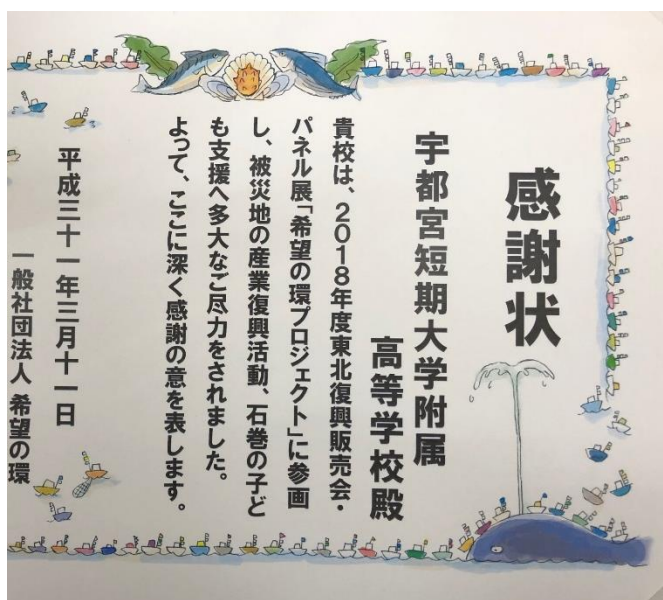 感謝状
宇都宮短期大学附属
高等学校殿
貴校は、2018年度東北復興販売会・
パネル展「希望の環プロジェクト」に参画
し、被災地の産業復興活動、石巻の子ど
も支援へ多大なご尽力をされました。
よって、ここに深く感謝の意を表します。
平成三十一年三月十一日
一般社団法人 希望の環